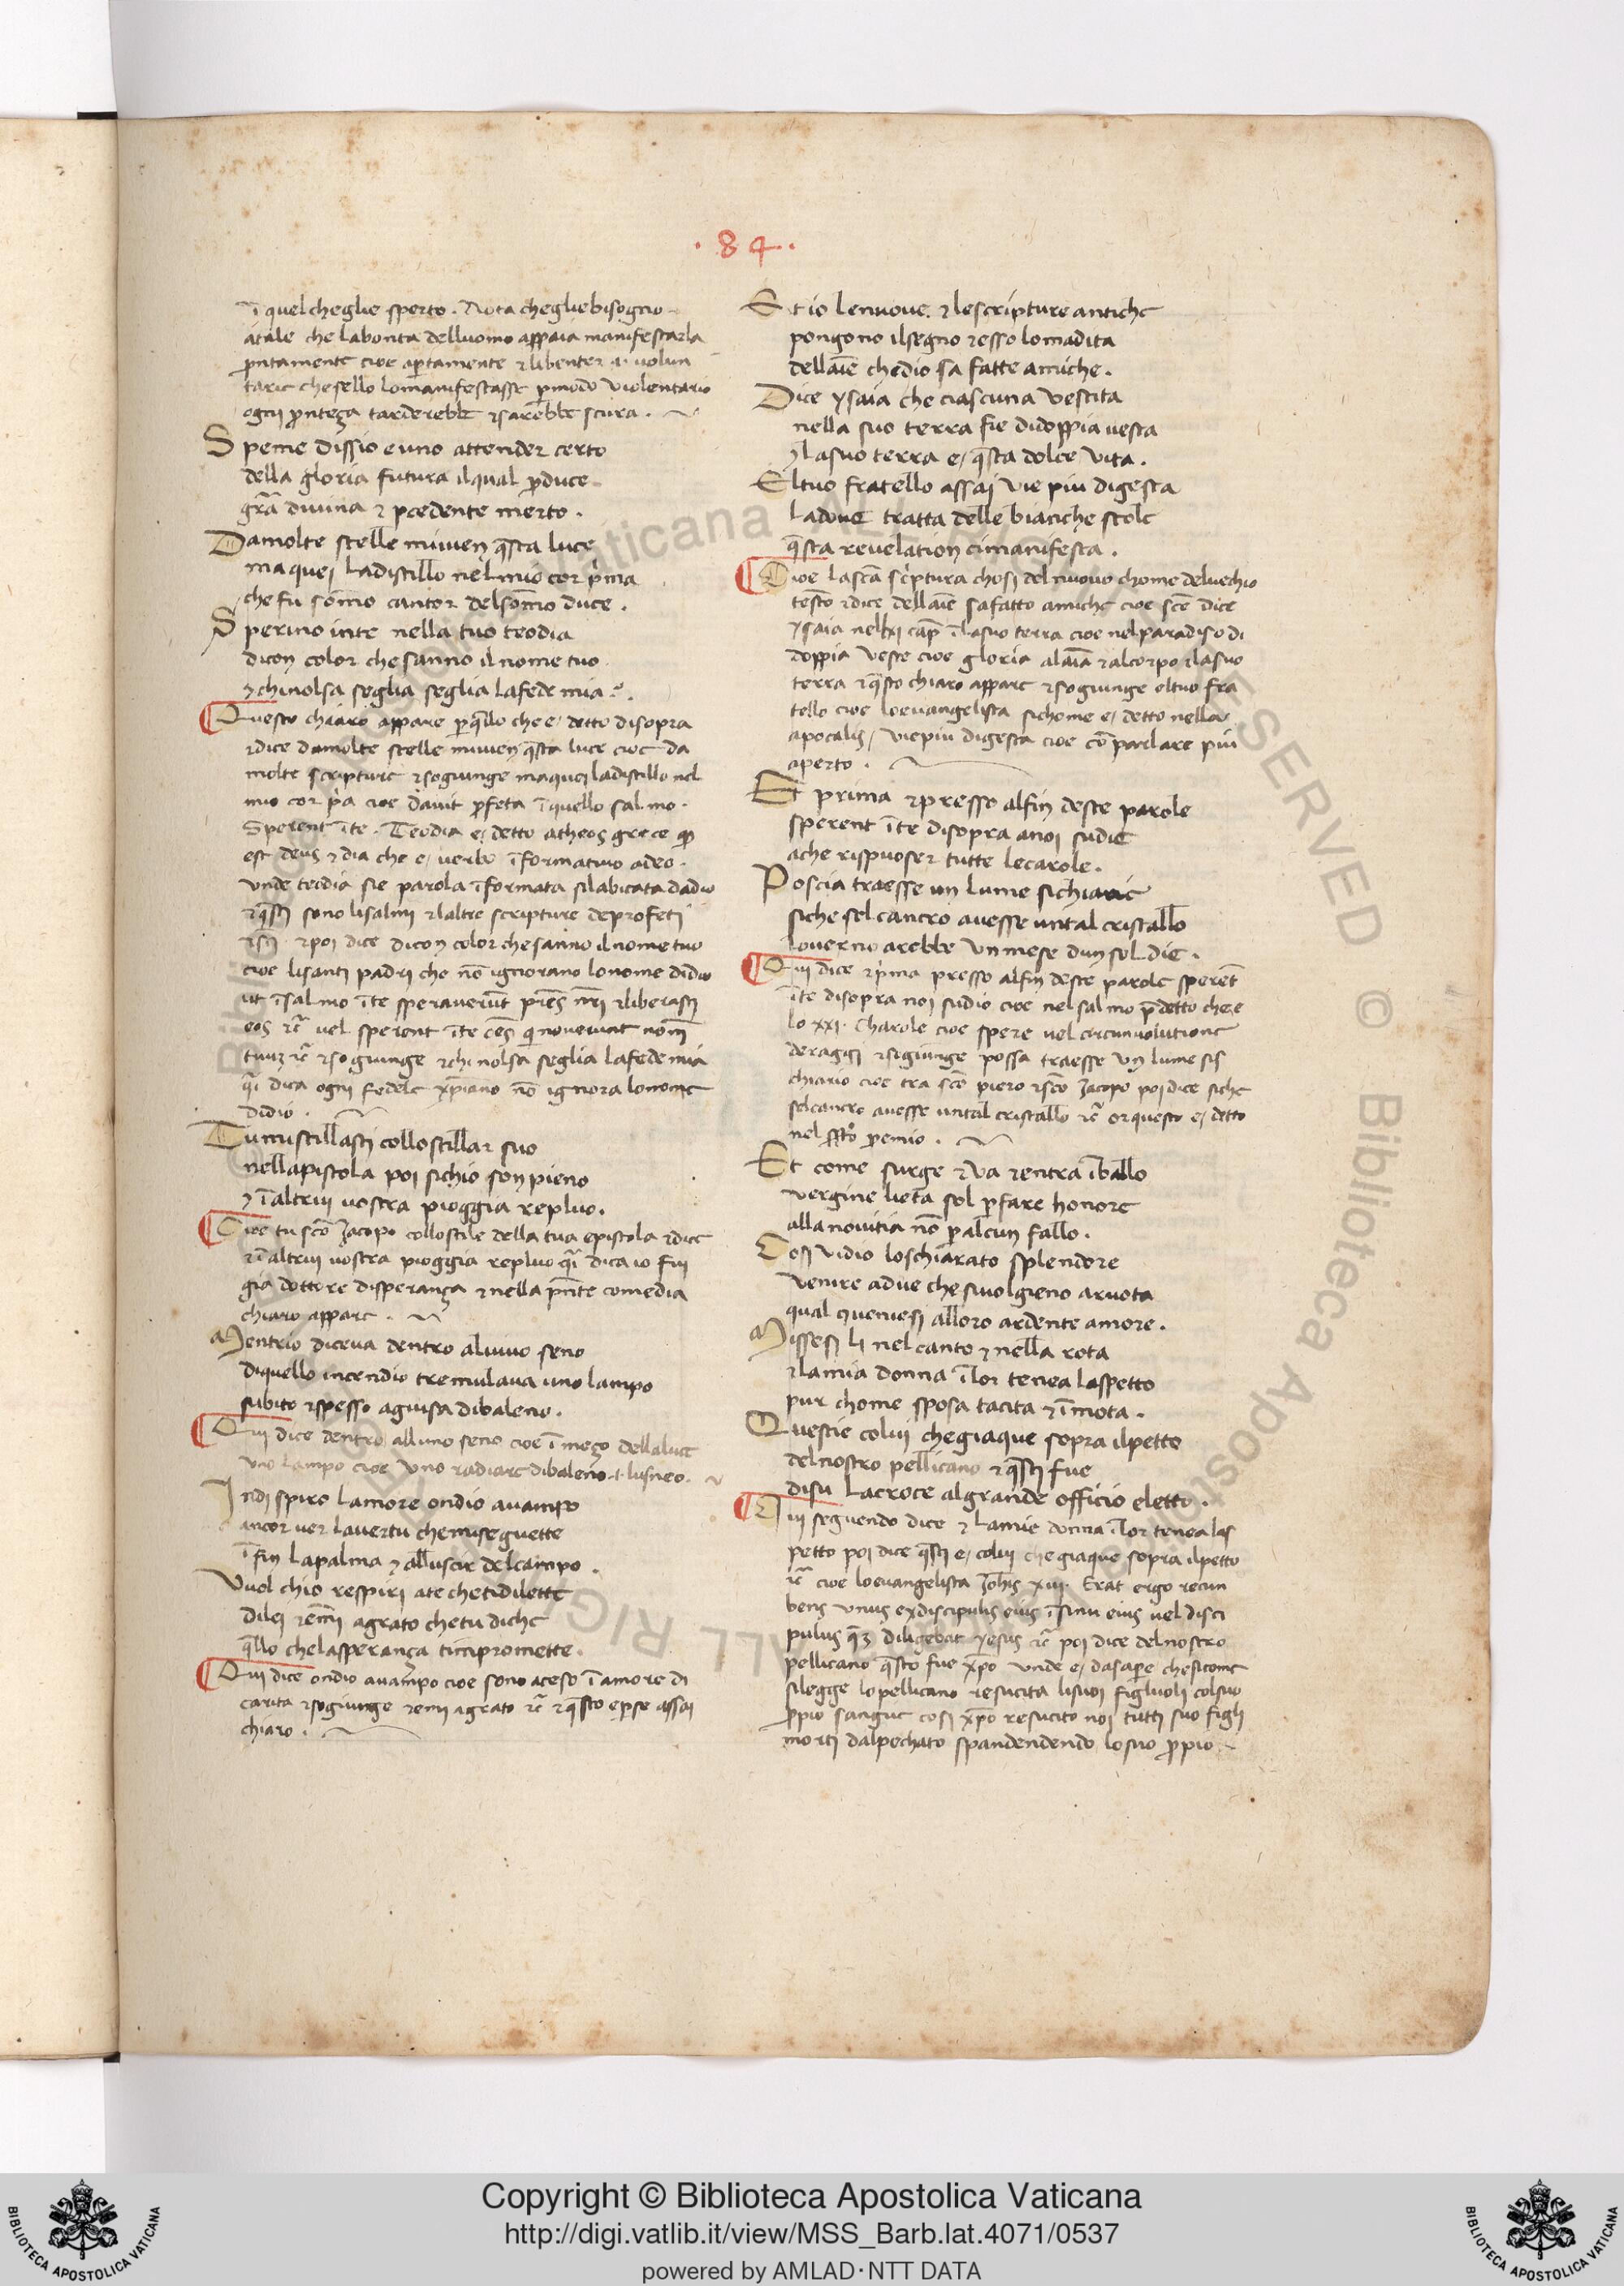 · 84 ·
ī quel cheglie sperto . Nota chegliebisogno
atale che labonta delluomo appaia manifestarla
p̄ntamente cioe apertamente ⁊ libenter .i. volun
tarie chesello lomanifestasse p̱ modo violentario
ogni prōteça tarderebbe ⁊ sarebbe scura .
Speme dissio e uno attender certo
della gloria futura ilqual p̱duce
grā divina ⁊ p̱cedente merto .
Damolte stelle mivien q̄sta luce
ma quei ladistillo nelmio cor p̍ma
che fu sōmo cantor delsōmo duce .
Sperino inte nella tuo teodia
dicon color che sanno il nome tuo
⁊ chinolsa seglia seglia lafede mia .
Questo chiaro appare p̱ q̄llo che e/ detto disopra
⁊ dice damolte stelle mivien q̄sta luce cioe da
molte scripture ⁊ sogiunge maquei ladistillo nel
mio cor p̍a cioe davit p̱feta ī quello salmo
Sperent ī te . Teodia e/ detto atheos grece
est deus ⁊ dia che e/ verbo īformativo adeo .
unde teodia sie parola īformata silabicata dadio
⁊ q̄sti sono lisalmi ⁊ laltre scripture deprofeti
⁊ poi dice dicon color che sanno ilnome tuo
cioe lisanti padri che nō ignorano lonome didio
ut ī salmo ī te speraverūt p̄res n̄ri ⁊ liberasti
eos ⁊c̄ vel sperent ī te ōes q̍ noverunt nom̄
tuuȝ ⁊c̄ ⁊ sogiunge ⁊ chi nolsa seglia lafede mia
q̄i dica ogni fedele xp̄iano nō ignora lonome
didio .
Tumistillasti collostillar suo
nellapistola poi sichio son pieno
⁊ ī altrui vostra pioggia repluo .
Cioe tu scō Jacopo collostile della tua epistola ⁊ dice
⁊ ī altrui vostra pioggia repluo q̄i dica io fui
gia dottore disperança ⁊ nella p̄nte comedia
chiaro appare .
Mentrio diceva dentro alvivo seno
diquello incendio tremulava uno lampo
subito ⁊ spesso aguisa dibaleno .
Qui dice dentro alluno seno cioe ī meço dellaluce
uno lampo cioe uno radiare dibaleno
Indi spiro lamore ondio avampo
ancor ver lavertu chemiseguette
ī fin lapalma ⁊ alluscir delcampo .
Vuol chio respiri ate chetidilette
dilei ⁊ ēmi agrato chetu diche
q̄llo chelasperança timpromette .
Qui dice ondio avampo cioe sono aceso ī amore di
carita ⁊ sogiunge ⁊ emi agrato ⁊c̄ ⁊ q̄sto e p̱ se assai
chiaro .
Et io lenuove ⁊ lescripture antiche
pongono ilsegno ⁊ esso lomadita
dellaīe chedio sa fatte amiche .
Dice ysaia che ciascuna vestita
nella suo terra fie didoppia vesta
⁊ lasuo terra e/ q̄sta dolce vita .
Eltuo fratello assai vie piu digesta
Ladove tratta delle bianche stole
q̄sta revelation cimanifesta .
Cioe lascā scriptura chosi del nuovo chome delvechio
testō ⁊ dice dellaīe safatto amiche cioe scē dice
ysaia nel lxi cap̄ ī lasuo terra cioe nelparadiso di
doppia veste cioe gloria alaīa ⁊ alcorpo ⁊ lasuo
terra ⁊ q̄sto chiaro appare ⁊ sogiunge eltuo fra
tello cioe loevangelista sichome e/ detto nella
apocalis/ viepiu digesta cioe cō parlare piu
aperto .
Et prima ⁊ presso alfin deste parole
sperent ī te disopra anoi sudie
ache rispuoser tutte lecarole .
Poscia traesse un lume sichiarie
siche sel cancro avesse untal cristallo
loverno arebbe un mese dun sol die .
Qui dice ⁊ p̍ma presso alfin deste parole sperēt
ī te disopra noi sudio cioe nel salmo p̄detto che e
lo xxi . Charole cioe spere vel circunvolutione
deraggi ⁊ sigiunge possa traesse un lume sis
chiario cioe tra scō piero ⁊ scō Jacopo poi dice siche
selcancro avesse untal cristallo ⁊c̄ or questo e/ detto
nel p̱emio .
Et come surge ⁊ va ⁊ entra ī ballo
vergine lieta sol p̱ fare honore
alla novitia nō p̱ alcun fallo .
Cosi vidio loschiarato splendore
venire adue che sivolgieno aruota
qual conveniesi alloro ardente amore .
Missesi li nel canto ⁊ nella rota
⁊ lamia donna ī lor tenea laspetto
pur chome sposa tacita ⁊ īmota .
Questie colui chegiaque sopra ilpetto
delnostro pellicano ⁊ q̄sti fue
disu lacroce algrande officio eletto .
Qui seguendo dice ⁊ lamie donna ī lor tenea las
petto poi dice q̄sti e/ colui chegiaque sopra ilpetto
⁊c̄ cioe loevangelista Johis xiii . Erat ergo recun
bens unus exdiscipulis eius ī sinu eius vel disci
pulus q̄ȝ diligebat yesus ⁊c̄ poi dice delnostro
pellicano q̄sto fue xp̄o unde e/ dasapere chesicome
silegge lopellicano resucita lisuoi figliuoli colsuo
p̱pio sangue cosi xp̄o resucito noi tutti suo figli
morti dalpechato spandendendo losuo p̱pio
Copyright © Biblioteca Apostolica Vaticana
http://digi.vatlib.it/view/MSS_Barb.lat.4071/0537
powered by AMLAD·NTT DATA